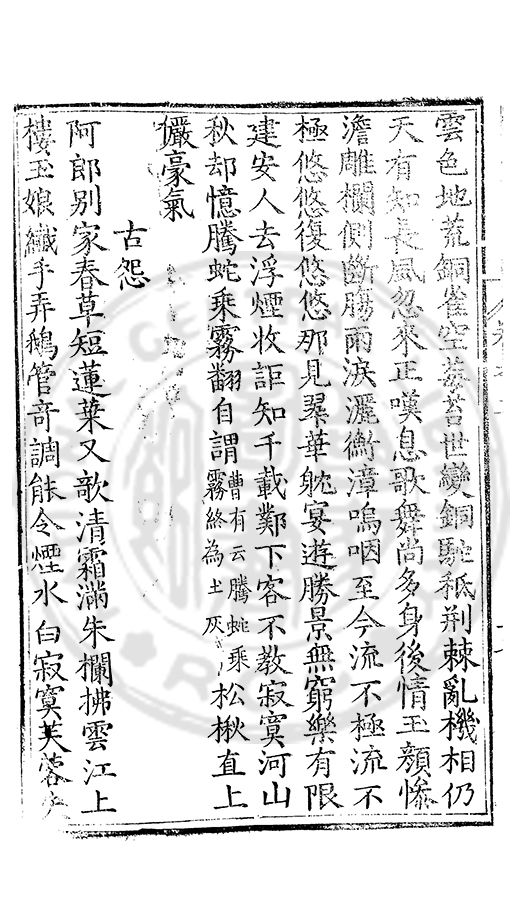 雲色地荒銅雀空蒼苔世變銅駝秪荆棘亂機相仍
天有知長風忽來正嘆息歌舞尚多身後情玉顏慘
澹雕欄側斷腸雨淚灑衛漳嗚咽至今流不極流不
極悠悠復悠悠那見翠華躭宴遊勝景無窮樂有限
建安人去浮煙收詎知千載鄴下客不教寂寞河山
秋却憶騰蛇乘霧翻自謂曹有云騰蛇乘霧終為土灰松楸直上
儼豪氣
古怨
阿郎别家春草短蓮葉又歌清霜滿朱欄拂雲江上
樓玉娘纖手弄鵝管奇調能令煙水白寂寞芙蓉